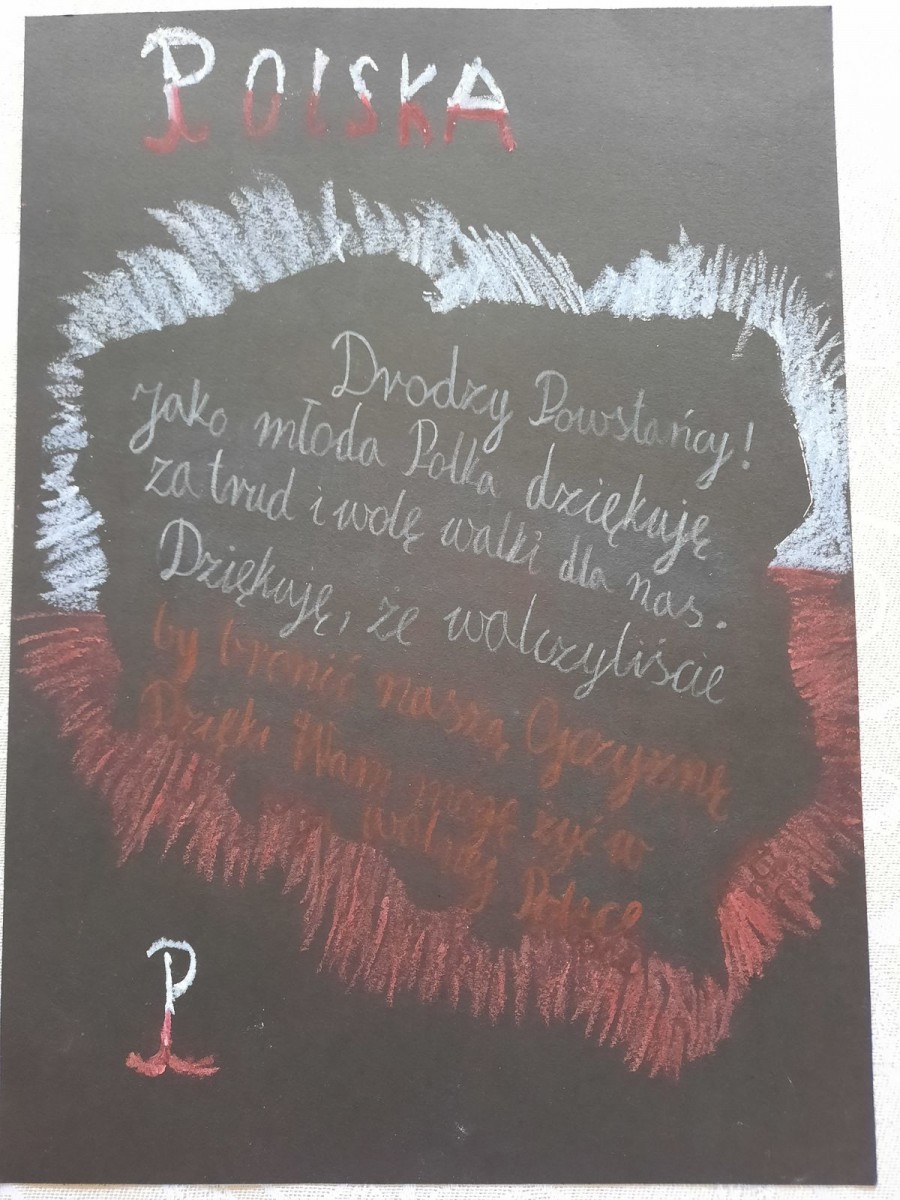 POLSKA
Drodzy Powstańcy!
Jako młoda Polka dziękuję
za trud i wolę walki dla nas.
Dziękuję, że walczyliście
by bronić naszą Ojczyznę
Dzięki Wam mogę żyć w
wolnej Polsce
P